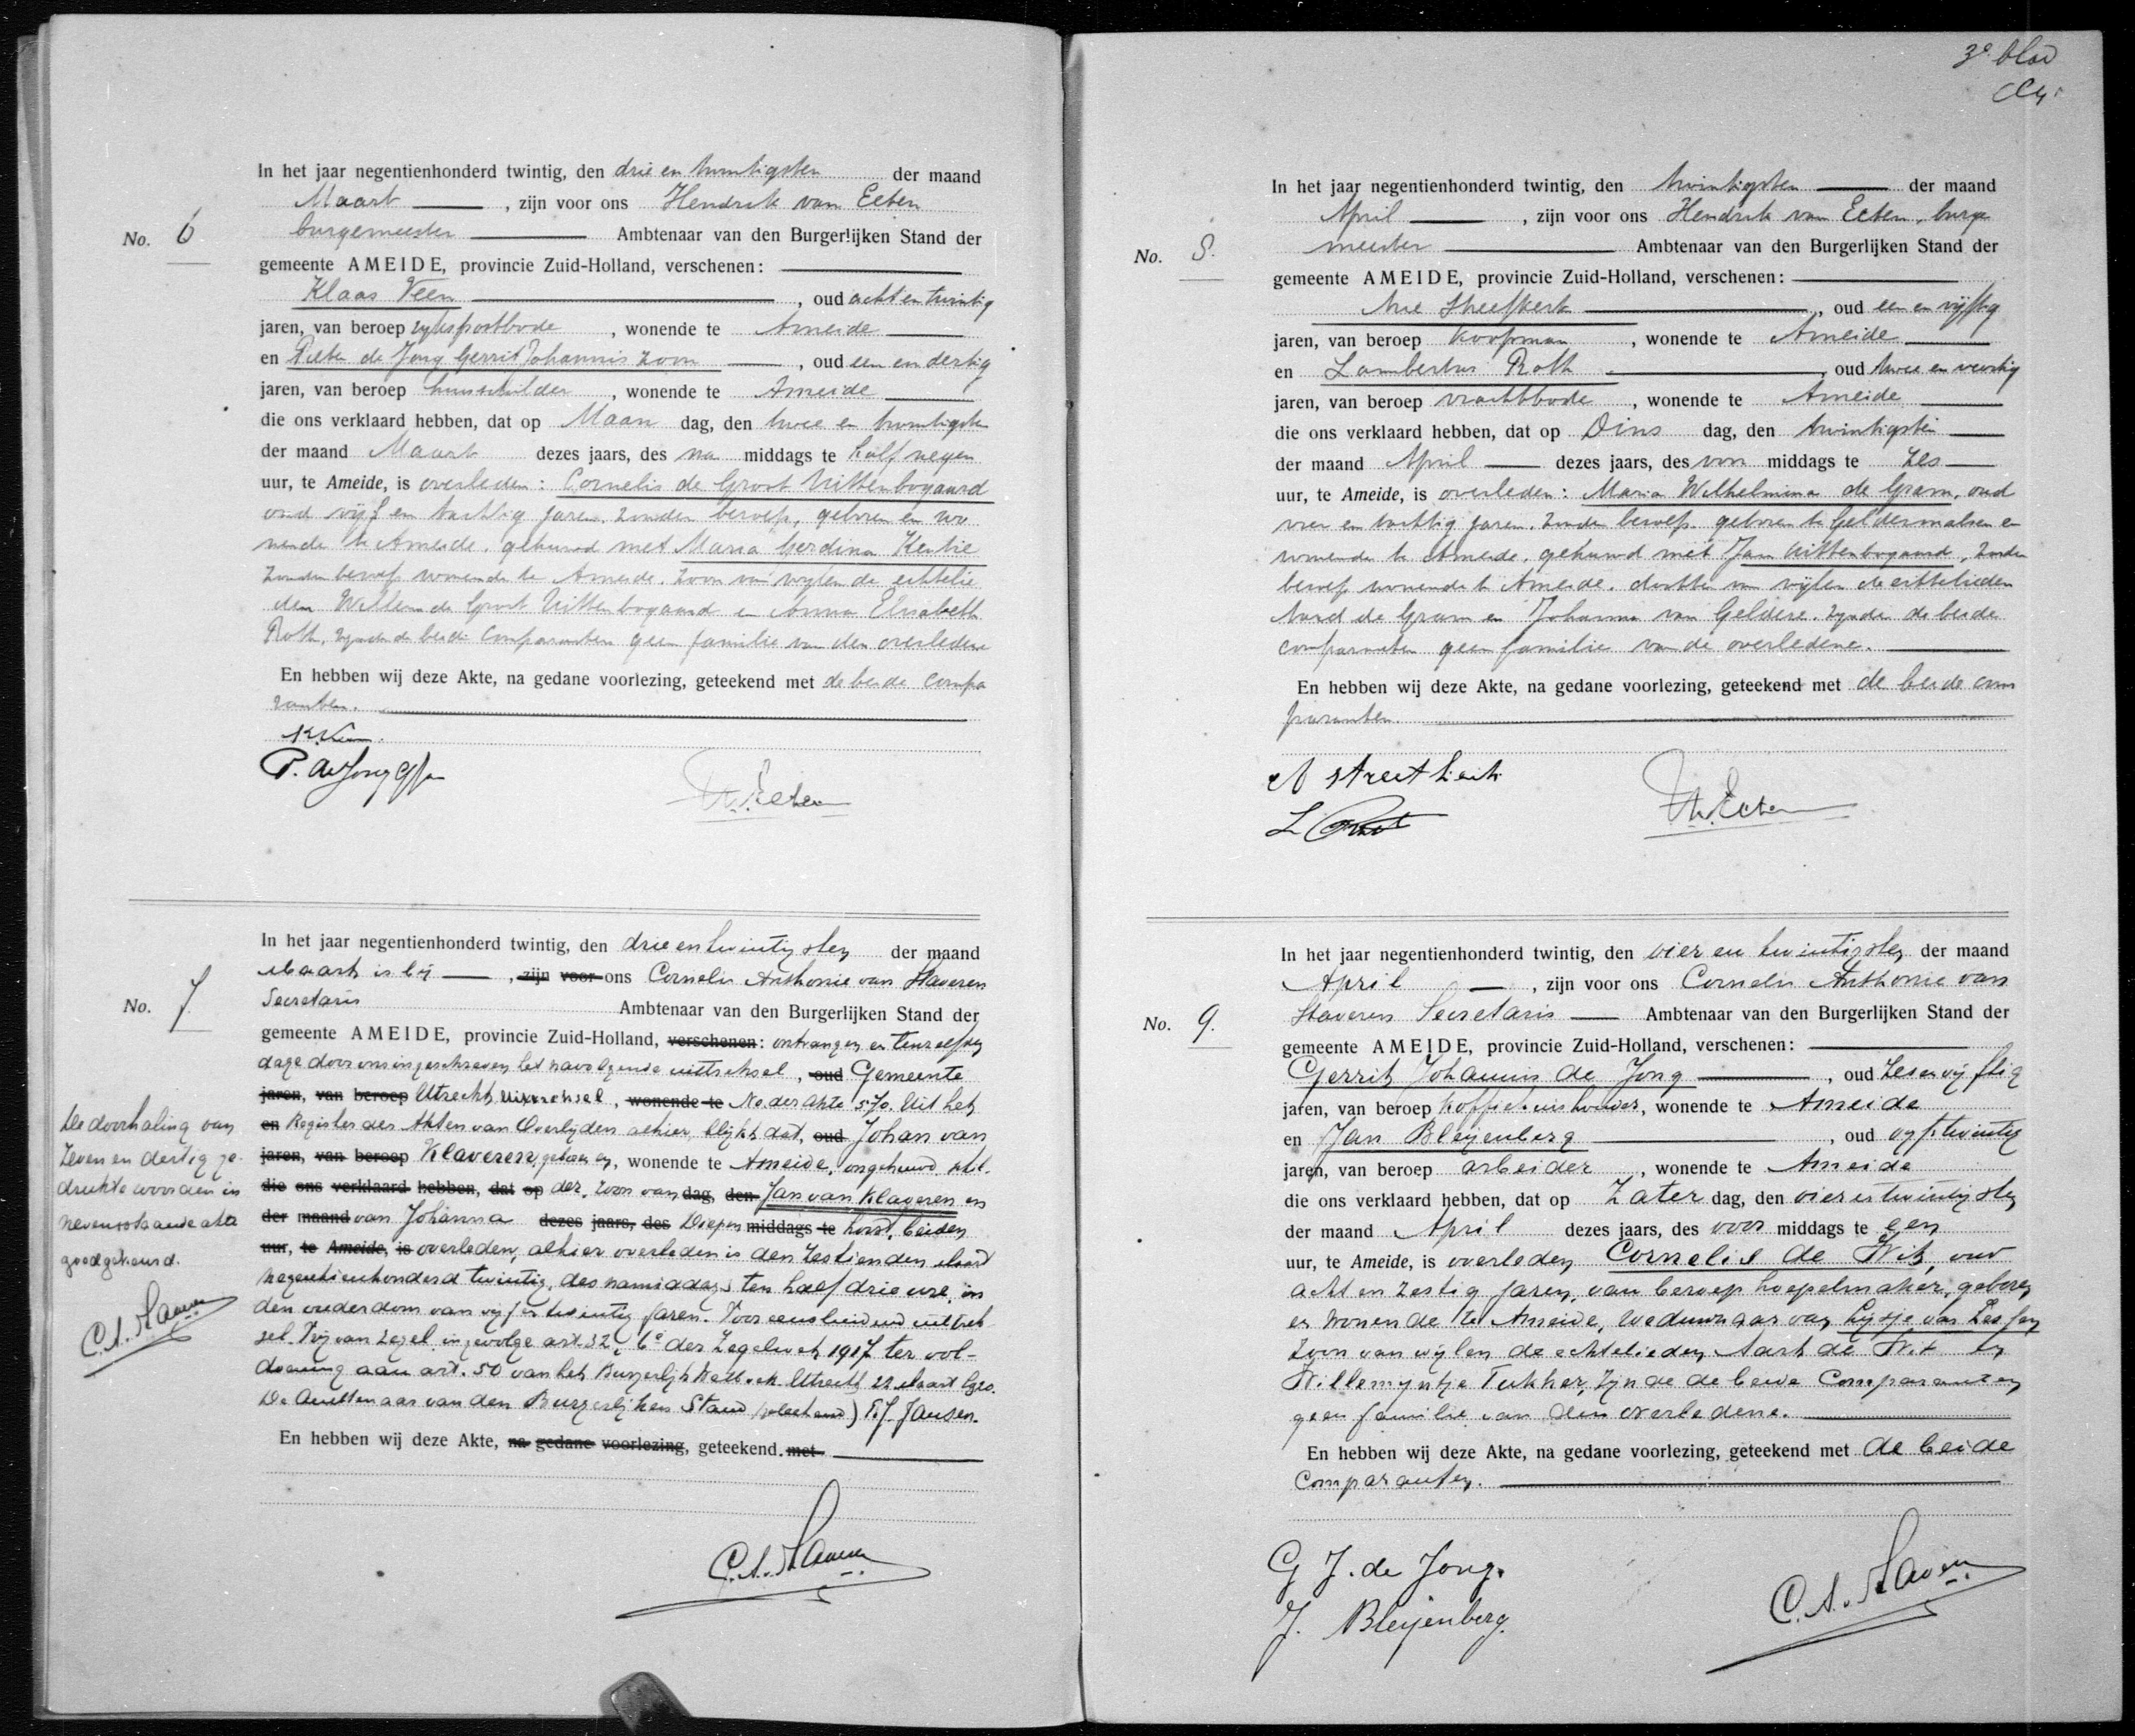 3e blad
No. 6
In het jaar negentienhonderd twintig, den drie en twintigsten der maand
Maart , zijn voor ons Hendrik van Eeten
burgemeester Ambtenaar van den Burgerlijken Stand der
gemeente AMEIDE, provincie Zuid-Holland, verschenen:
Klaas Veen , oud acht en twintig
jaren, van beroep rijkspostbode , wonende te Ameide
en Pieter de Jong Gerrit Johannis zoon , oud een en dertig
jaren, van beroep huisschilder , wonende te Ameide
die ons verklaard hebben, dat op Maan dag, den twee en twintigsten
der maand Maart dezes jaars, des na middags te half negen
uur, te Ameide, is overleden: Cornelis de Groot Uittenbogaard
oud vijf en tachtig jaren, zonder beroep, geboren en wo
nende te Ameide, gehuwd met Maria Gerdina Kentie
zonder beroep wonende te Ameide, zoon van wijlen de echtelie
den Willem de Groot Uittenbogaard en Anna Elisabeth
Roth, zijnde de beide comparanten geen familie van den overledene
En hebben wij deze Akte, na gedane voorlezing, geteekend met de beide compa
ranten.
K. Veen.
P. de Jong GJzn
H. v. Eeten
No. 7
In het jaar negentienhonderd twintig, den drie en twintigsten der maand
Maart is bij , zijn voor ons Cornelis Anthonie van Staveren
Secretaris Ambtenaar van den Burgerlijken Stand der
gemeente AMEIDE, provincie Zuid-Holland, verschenen: ontvangen en tenzelfden
dage door ons ingeschreven het navolgende uittreksel , oud Gemeente
jaren, van beroep Utrecht, Uittreksel , wonende te No der akte 570. Uit het
en Register der Akten van Overlijden alhier, blijkt dat, oud Johan van
jaren, van beroep Klaveren, geboren en, wonende te Ameide, ongehuwd,
die ons verklaard hebben, dat op der, zoon van dag, den Jan van Klaveren en
der maand van Johanna dezes jaars, des Diepen middags te horst, beiden
uur, te Ameide, is overleden, alhier overleden is den zestienden Maart
negentienhonderd twintig, des namiddags ten half drie ure, in
den ouderdom van vijf en twintig jaren. Voor eensluidend uittrek
sel. Vrij van zegel ingevolge art. 32, 6e der Zegelwet 1917 ter vol-
doening aan art. 50 van het Burgerlijk Wetboek. Utrecht, 22 Maart 1920.
De Ambtenaar van den Burgerlijken Stand (geteekend) T. J. Jansen.
En hebben wij deze Akte, na gedane voorlezing, geteekend. met
De doorhaling van
zeven en dertig ge-
drukte woorden in
nevenstaande akte
goedgekeurd.
C. A. v. Staveren
C. A. v. Staveren
No. 8.
In het jaar negentienhonderd twintig, den twintigsten der maand
April , zijn voor ons Hendrik van Eeten, burge
meester Ambtenaar van den Burgerlijken Stand der
gemeente AMEIDE, provincie Zuid-Holland, verschenen:
Arie Streefkerk , oud een en vijftig
jaren, van beroep koopman , wonende te Ameide
en Lambertus Roth , oud twee en veertig
jaren, van beroep vrachtbode , wonende te Ameide
die ons verklaard hebben, dat op Dins dag, den twintigsten
der maand April dezes jaars, des voor middags te zes
uur, te Ameide, is overleden: Maria Wilhelmina de Gram, oud
vier en tachtig jaren, zonder beroep, geboren te Geldermalsen en
wonende te Ameide, gehuwd met Jan Uittenbogaard, zonder
beroep wonende te Ameide, dochter van wijlen de echtelieden
Aard de Gram en Johanna van Geldere, zijnde de beide
comparanten geen familie van de overledene.
En hebben wij deze Akte, na gedane voorlezing, geteekend met de beide com
paranten.
A streefkerk
L Roth
H. v. Eeten
No. 9.
In het jaar negentienhonderd twintig, den vier en twintigsten der maand
April , zijn voor ons Cornelis Anthonie van
Staveren Secretaris Ambtenaar van den Burgerlijken Stand der
gemeente AMEIDE, provincie Zuid-Holland, verschenen:
Gerrit Johannis de Jong , oud zes en vijftig
jaren, van beroep koffiehuishouder, wonende te Ameide
en Jan Bleijenberg , oud vijftwintig
jaren, van beroep arbeider , wonende te Ameide
die ons verklaard hebben, dat op Zater dag, den vier en twintigsten
der maand April dezes jaars, des voor middags te een
uur, te Ameide, is overleden Cornelis de Wit, oud
acht en zestig jaren, van beroep hoepelmaker, geboren
en wonende te Ameide, weduwnaar van Lijsje van Lessen
zoon van wijlen de echtelieden Aart de Wit en
Willemijntje Tukker, zijnde de beide comparanten
geen familie van den overledene.
En hebben wij deze Akte, na gedane voorlezing, geteekend met de beide
comparanten.
G J. de Jong.
J. Bleijenberg.
C. A. v. Staveren